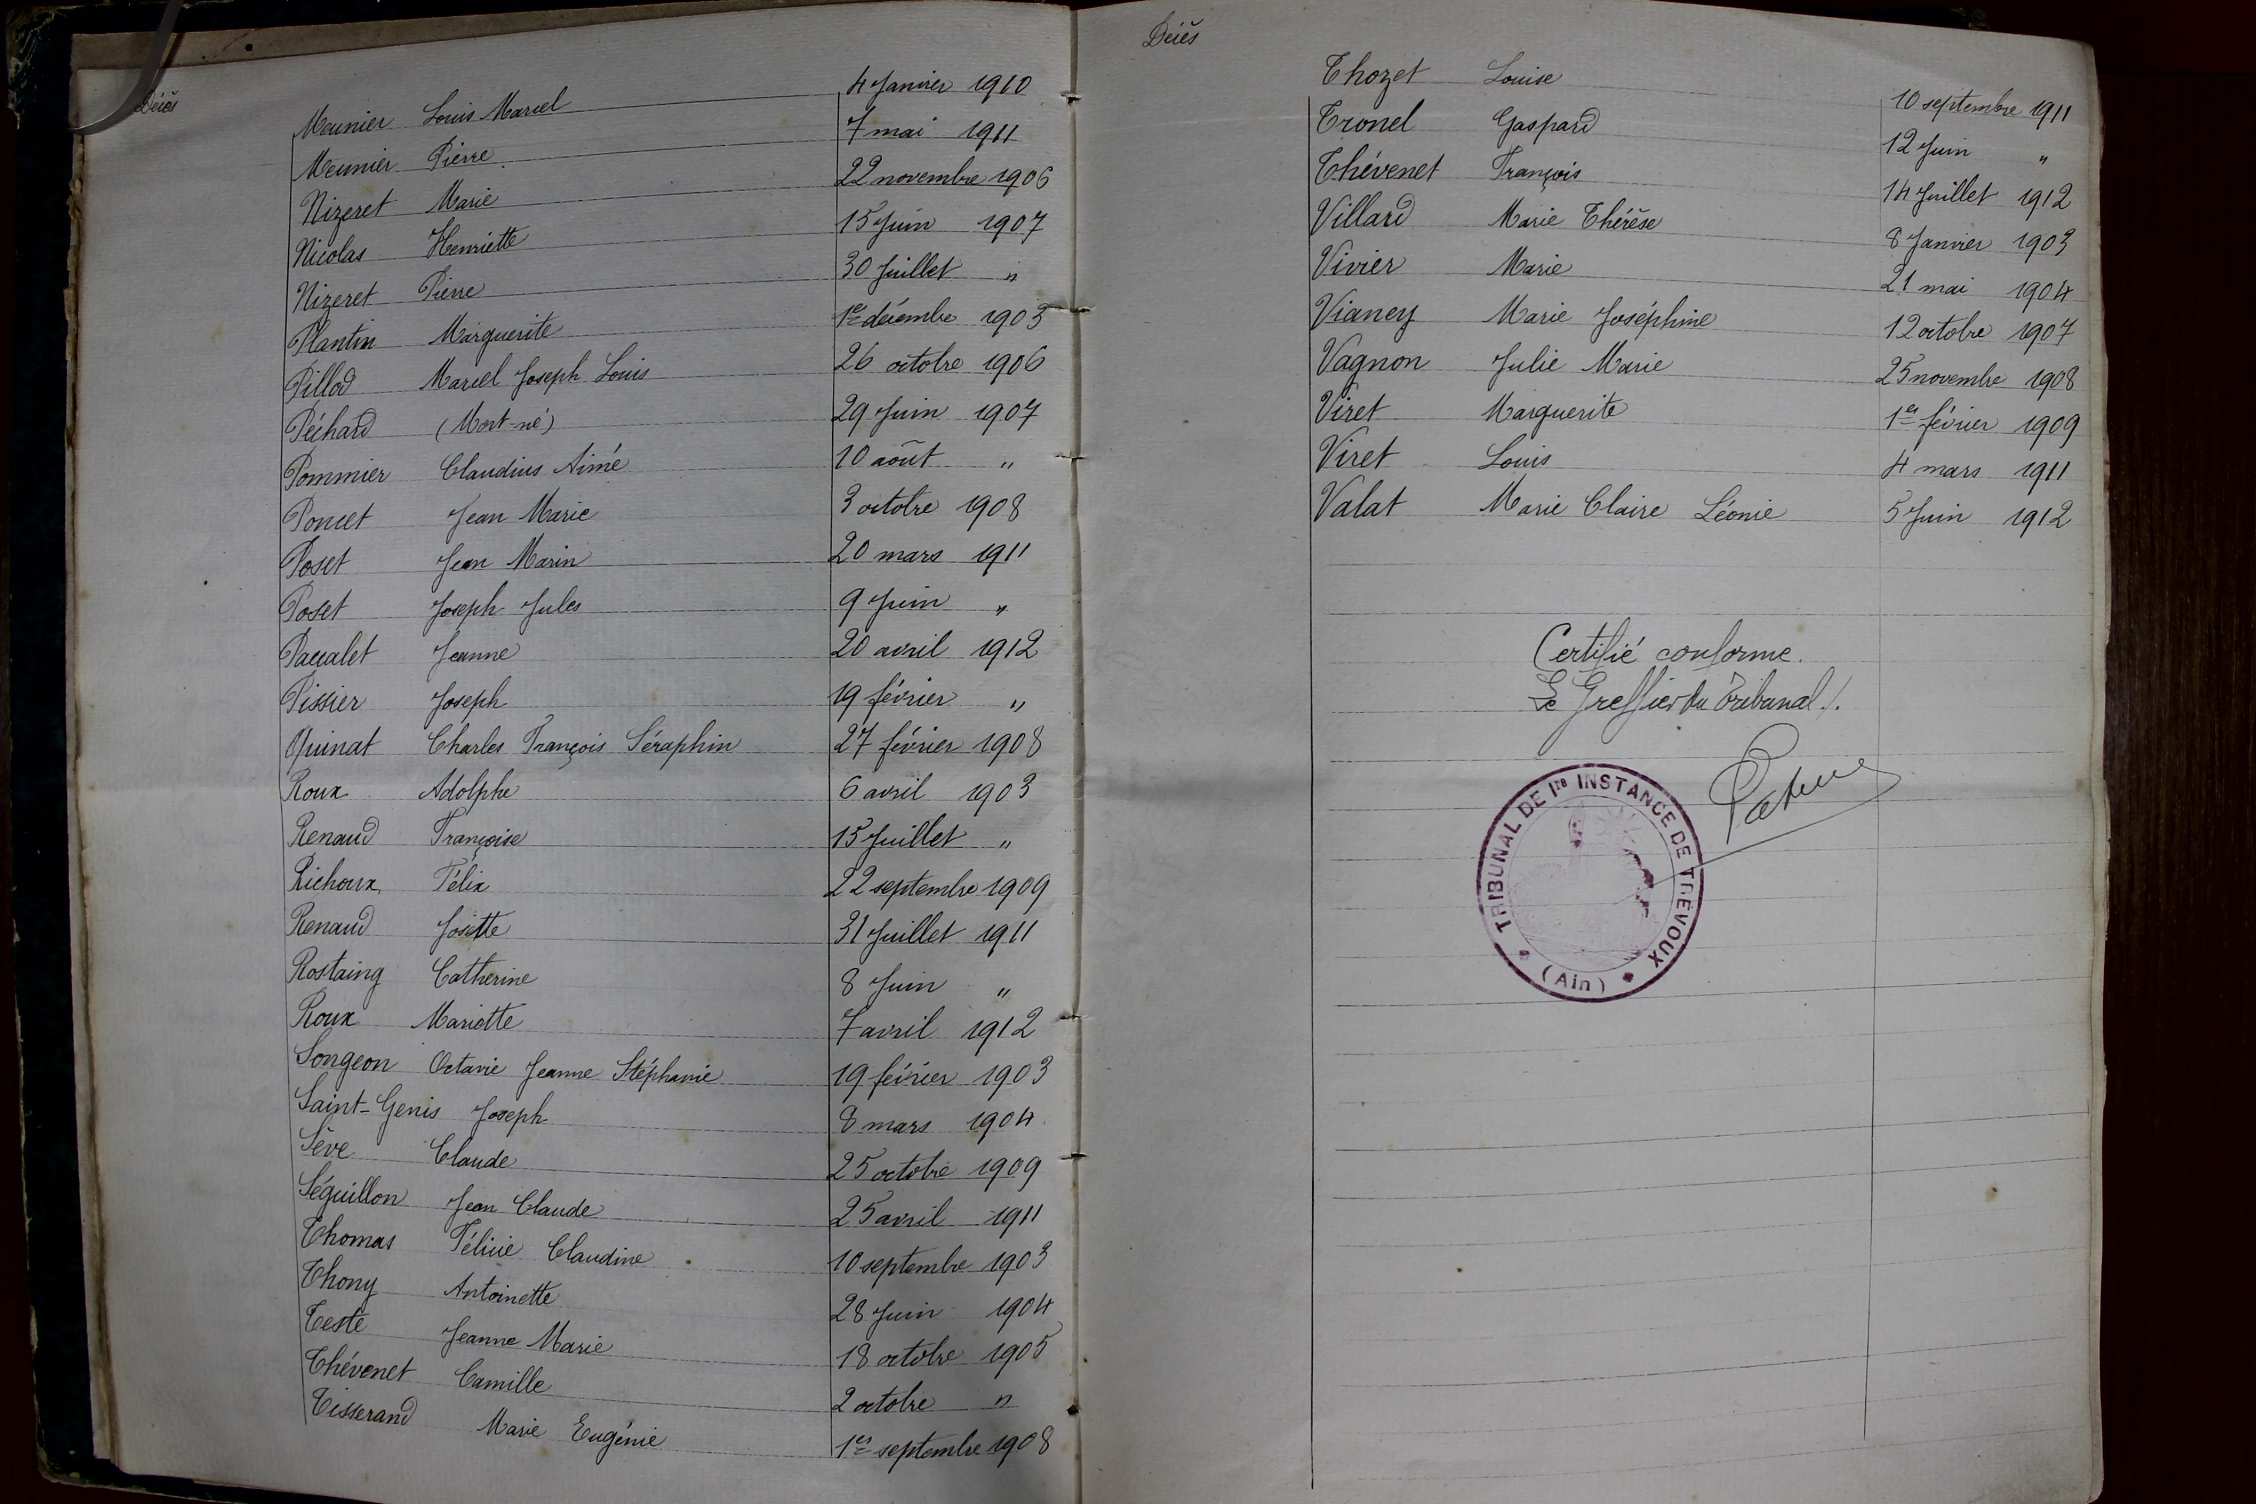 Décès
Meunier Louis Marcel 4 Janvier 1910
Meunier Pierre 7 mai 1911
Nizeret Marie 22 novembre 1906
Nicolas Henriette 15 Juin 1907
Nizeret Pierre 30 Juillet "
Plantin Marguerite 1er décembre 1903
Pillod Marcel Joseph Louis 26 octobre 1906
Péchard (Mort-né) 29 Juin 1907
Pommier Claudius Aimé 10 août "
Poncet Jean Marie 3 octobre 1908
Poset Jean Marin 20 mars 1911
Poset Joseph Jules 9 Juin "
Paccalet Jeanne 20 avril 1912
Pissier Joseph 19 février "
Quinat Charles François Séraphin 27 février 1908
Roux Adolphe 6 avril 1903
Renaud Françoise 15 Juillet "
Richoux Félix 22 septembre 1909
Renaud Josette 31 Juillet 1911
Rostaing Catherine 8 Juin "
Roux Mariette 7 avril 1912
Songeon Octavie Jeanne Stéphanie 19 février 1903
Saint-Genis Joseph 8 mars 1904
Sève Claude 25 octobre 1909
Séguillon Jean Claude 25 avril 1911
Thomas Félicie Claudine 10 septembre 1903
Thony Antoinette 28 Juin 1904
Teste Jeanne Marie 18 octobre 1905
Thévenet Camille 2 octobre "
Tisserand Marie Eugénie 1er septembre 1908
Décès
Thozet Louise 10 septembre 1911
Tronel Gaspard 12 Juin "
Thévenet François 14 Juillet 1912
Villard Marie Thérèse 8 Janvier 1903
Vivier Marie 21 mai 1904
Vianey Marie Joséphine 12 octobre 1907
Vagnon Julie Marie 25 novembre 1908
Viret Marguerite 1er février 1909
Viret Louis 4 mars 1911
Valat Marie Claire Léonie 5 Juin 1912
Certifié conforme.
Le Greffier du Tribunal /.
TRIBUNAL DE 1re INSTANCE DE TRÉVOUX
(Ain)